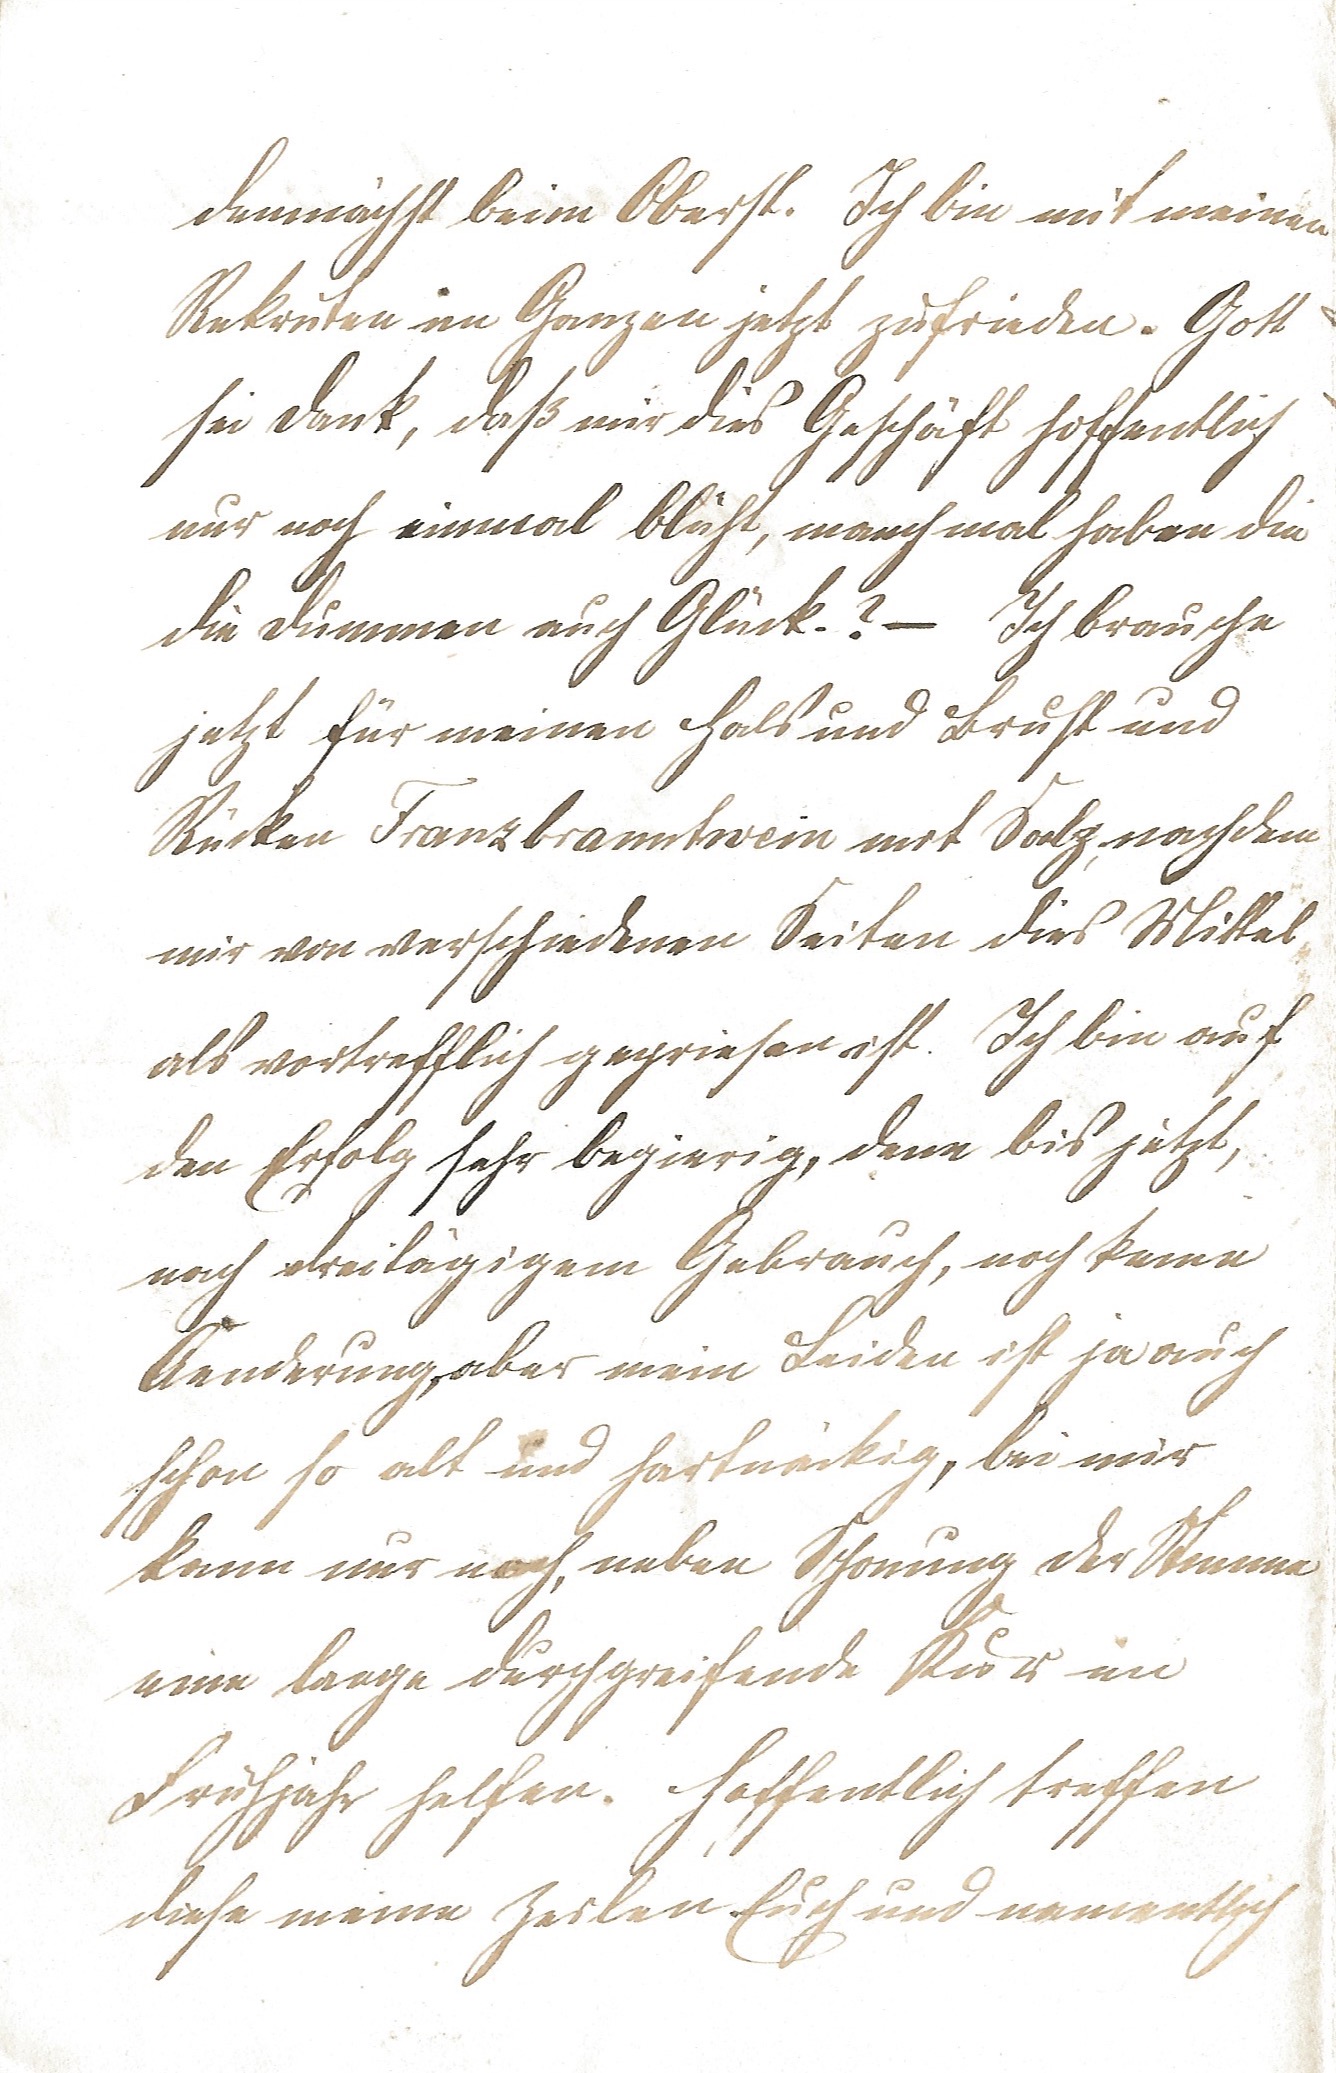 demnächst beim Oberst. Ich bin mit meinen
Rekruten im Ganzen jetzt zufrieden. Gott
sei Dank, daß mir dies Geschäft hoffentlich
nur noch einmal blüht, manchmal haben die
die Dummen auch Glück.? — Ich brauche
jetzt für meinen Hals und Brust und
Rücken Franzbranntwein mit Salz, nachdem
mir von verschiedenen Seiten dies Mittel
als vortrefflich gepriesen ist. Ich bin auf
den Erfolg sehr begierig, denn bis jetzt,
nach dreitägigem Gebrauch, noch keine
Aenderung, aber mein Leiden ist ja auch
schon so alt und hartnäckig, bei mir
kann nur noch, neben Schonung der Stimme
eine lange durchgreifende Kur im
Frühjahr helfen. Hoffentlich treffen
diese meine Zeilen Euch und namentlich